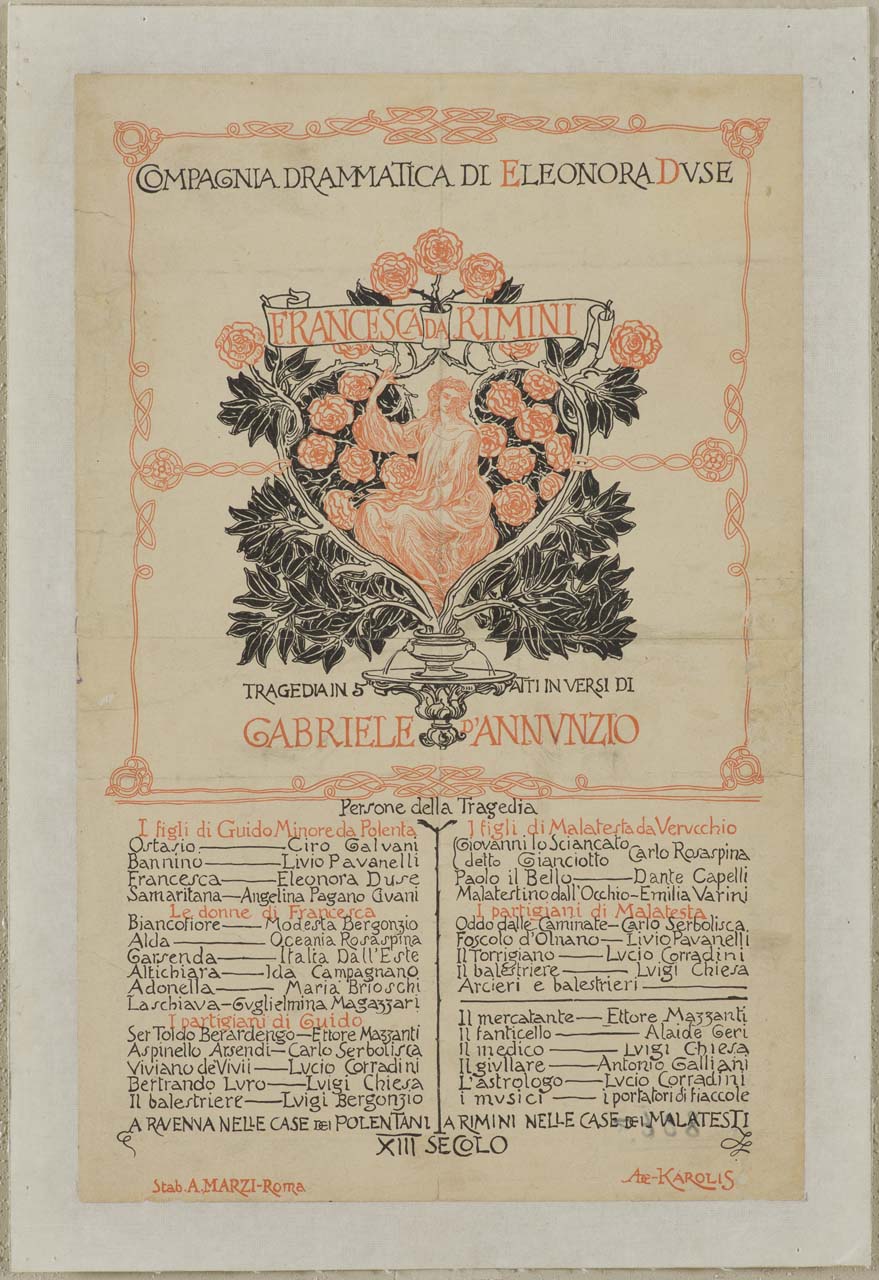 COMPAGNIA DRAMMATICA DI ELEONORA DVSE
FRANCESCA DA RIMINI
TRAGEDIA IN 5 ATTI IN VERSI DI
GABRIELE D'ANNVNZIO
Persone della Tragedia
I figli di Guido Minore da Polenta
Ostasio — Ciro Galvani
Bannino — Livio Pavanelli
Francesca — Eleonora Duse
Samaritana — Angelina Pagano Gvani
Le donne di Francesca
Biancofiore — Modesta Bergonzio
Alda — Oceania Rosaspina
Garsenda — Italia Dall'Este
Altichiara — Ida Campagnano
Adonella — Maria Brioschi
La schiava — Gvglielmina Magazzari
I partigiani di Guido
Ser Toldo Berardengo — Ettore Mazzanti
Aspinello Arsendi — Carlo Serbolisca
Viviano de Vivii — Lvcio Corradini
Bertrando Lvro — Lvigi Chiesa
Il balestriere — Lvigi Bergonzio
A RAVENNA NELLE CASE DEI POLENTANI
I figli di Malatesta da Vervcchio
Giovanni lo Sciancato
detto Gianciotto Carlo Rosaspina
Paolo il Bello — Dante Capelli
Malatestino dall'Occhio — Emilia Varini
I partigiani di Malatesta
Oddo dalle Caminate — Carlo Serbolisca
Foscolo d'Olnano — Livio Pavanelli
Il Torrigiano — Lvcio Corradini
Il balestriere — Lvigi Chiesa
Arcieri e balestrieri —
Il mercatante — Ettore Mazzanti
Il fanticello — Alaide Geri
Il medico — Lvigi Chiesa
Il givllare — Antonio Galliani
L'astrologo — Lvcio Corradini
i mvsici — i portatori di fiaccole
A RIMINI NELLE CASE DEI MALATESTI
XIII SECOLO
Stab. A. MARZI-Roma
ADE-KAROLIS